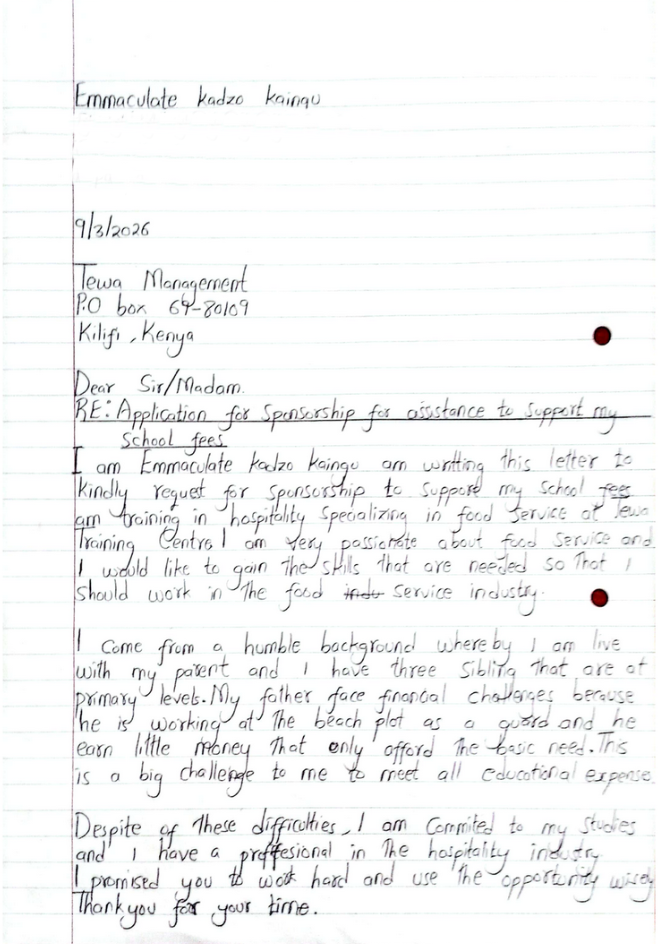 Emmaculate kadzo kaingu
9/3/2026
Tewa Management
P.O box 64-80109
Kilifi, Kenya
Dear Sir/Madam.
RE: Application for Sponsorship for assistance to support my
School fees
I am Emmaculate kadzo kaingu am writting this letter to
kindly request for sponsorship to support my school fees
am training in hospitality specializing in food service at Tewa
Training Centre I am very passionate about food service and
I would like to gain the skills that are needed so that I
should work in the food indu service industry.
I come from a humble background whereby I am live
with my parent and I have three sibling that are at
primary levels. My father face financial challenges because
he is working at the beach plot as a guard and he
earn little money that only afford the basic need. This
is a big challenge to me to meet all educational expense.
Despite of these difficulties, I am commited to my studies
and I have a proffesional in the hospitality industry
I promised you to work hard and use the opportunity wisely
Thankyou for your time.